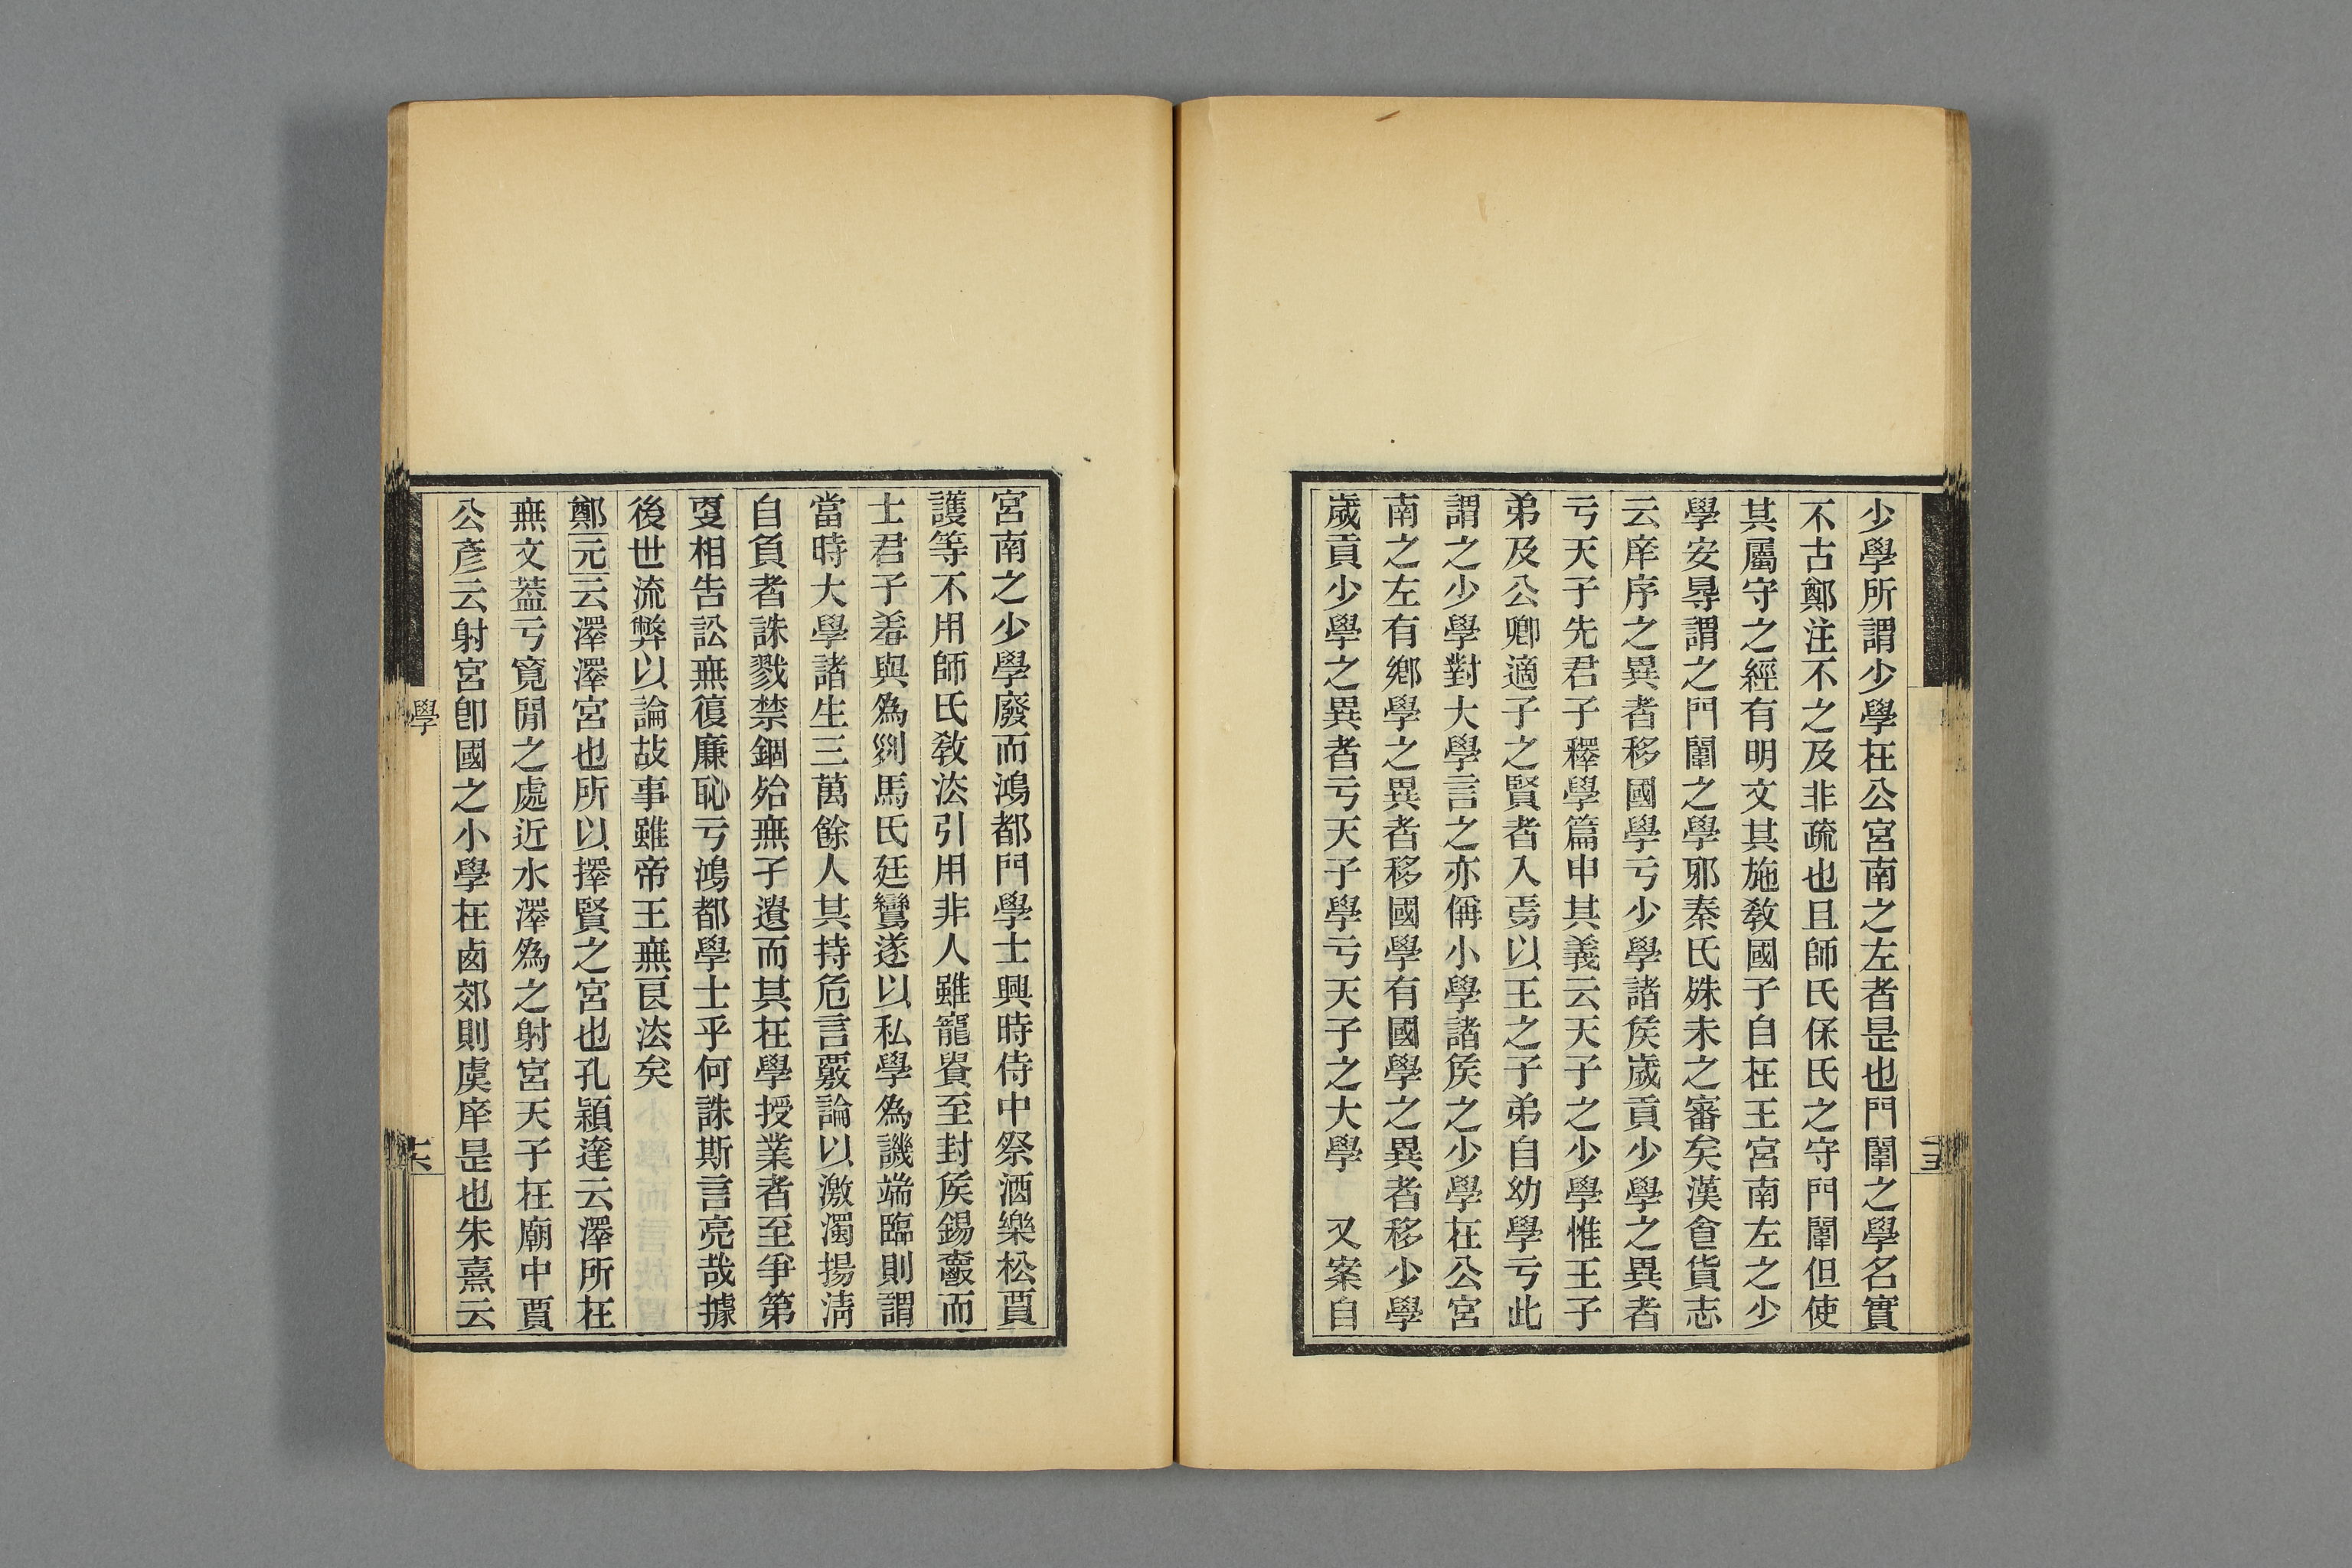 少學所謂少學在公宮南之左者是也門闈之學名實
不古鄭注不之及非疏也且師氏保氏之守門闈但使
其屬守之經有明文其施敎國子自在王宮南左之少
學安㝵謂之門闈之學邪秦氏殊未之審矣漢食貨志
云庠序之異者移國學亏少學諸矦歲貢少學之異者
亏天子先君子釋學篇申其義云天子之少學惟王子
弟及公卿適子之賢者入焉以王之子弟自幼學亏此
謂之少學對大學言之亦偁小學諸矦之少學在公宮
南之左有鄉學之異者移國學有國學之異者移少學
歲貢少學之異者亏天子學亏天子之大學　又案自
宮南之少學廢而鴻都門學士興時侍中祭酒樂松賈
護等不用師氏敎法引用非人雖寵㬪至封矦錫𧟌而
士君子羞與爲列馬氏廷鸞遂以私學爲譏端臨則謂
當時大學諸生三萬餘人其持危言覈論以激濁揚淸
自負者誅戮禁錮殆無孑遺而其在學授業者至爭第
㪅相告訟無復廉恥亏鴻都學士乎何誅斯言亮哉據
後世流弊以論故事雖帝王無良法矣
鄭元云澤澤宮也所以擇賢之宮也孔穎達云澤所在
無文葢亏寬閒之處近水澤爲之射宮天子在廟中賈
公彥云射宮卽國之小學在鹵郊則虞庠是也朱熹云
學